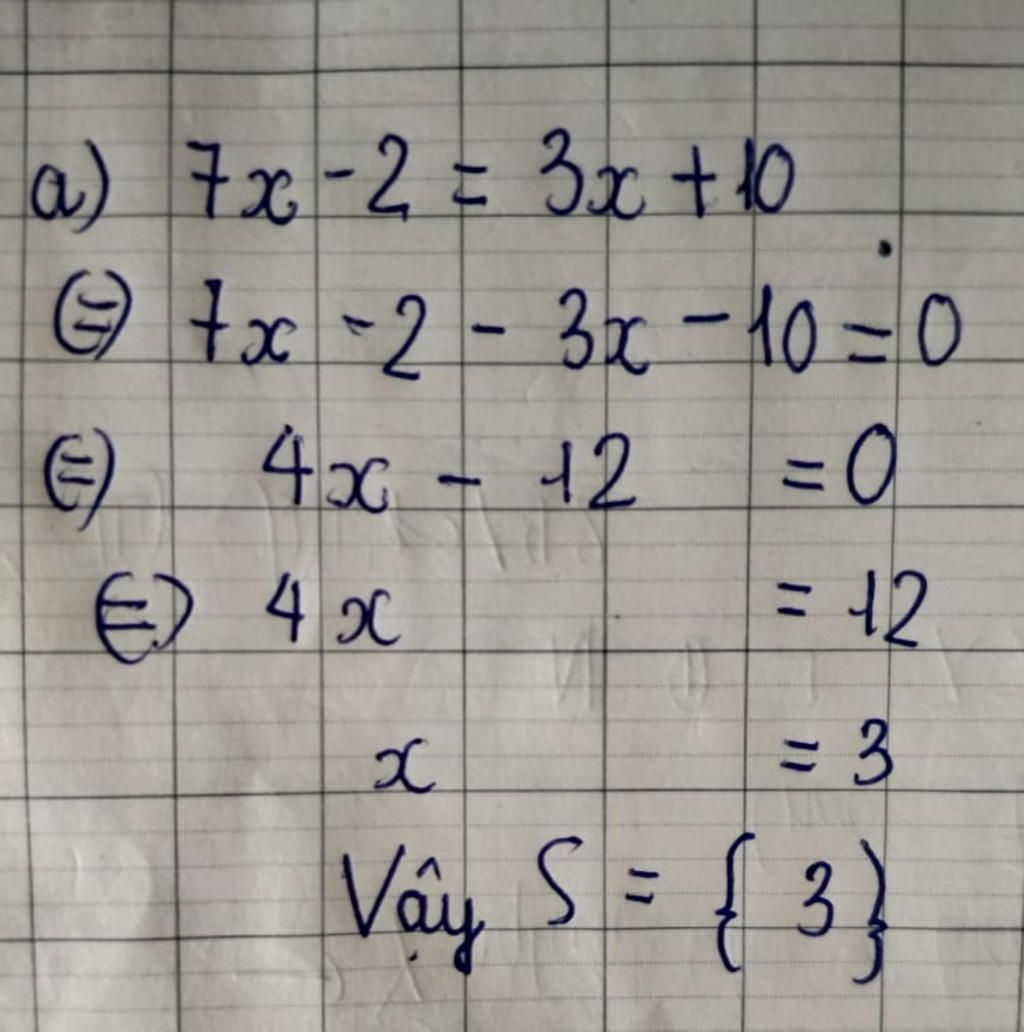 a) 7x - 2 = 3x + 10
(=) 7x - 2 - 3x - 10 = 0
(=) 4x - 12 = 0
(=) 4x = 12
x = 3
Vậy S = { 3 }